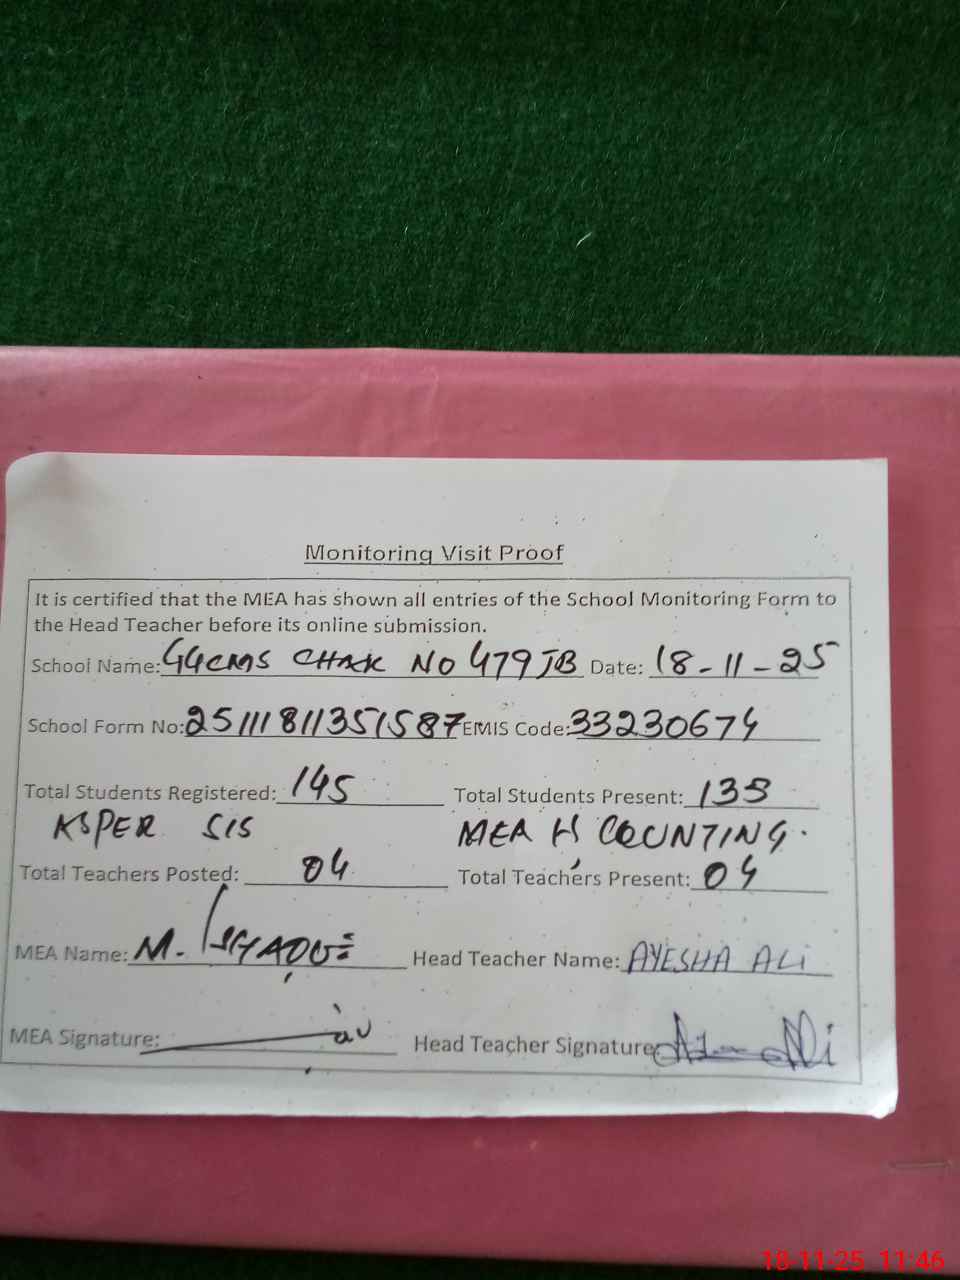 Monitoring Visit Proof
It is certified that the MEA has shown all entries of the School Monitoring Form to
the Head Teacher before its online submission.
School Name: GGCMS CHAK NO 479 JB Date: 18-11-25
School Form No: 25111811351587 EMIS Code: 33230674
Total Students Registered: 145 Total Students Present: 133
ASPER SIS MEA COUNTING.
Total Teachers Posted: 04 Total Teachers Present: 04
MEA Name: M. Head Teacher Name: AYESHA ALI
MEA Signature: Head Teacher Signature:
18-11-25 11:46